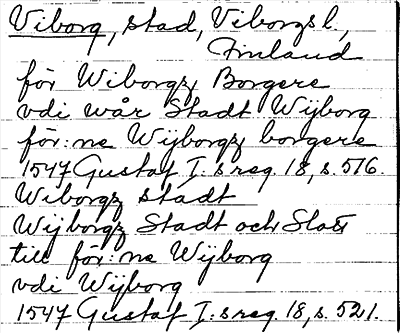 Viborg, stad, Viborgs l.,
Finland
för Wiborgz Borgere
vdi wår Stadt Wijborg
för:ne Wijborgz borgere
1547 Gustaf I:s reg. 18, s. 516.
Wiborgz stadt
Wijborgz Stadt och Slått
till för:ne Wijborg
vdi Wijborg
1547 Gustaf I:s reg. 18, s. 521.